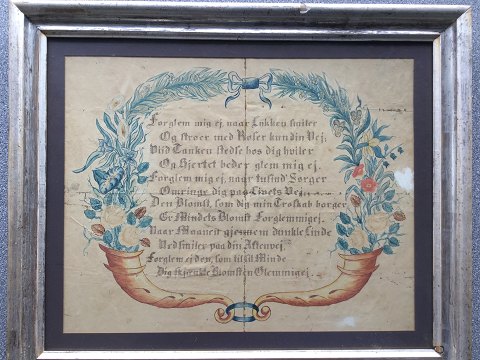 Forglem mig ej, naar Lükken smiler
Og strøer med Roser kun din Vej,
Viid Tanken stedse hos dig hviler
Og Hjertet beder glem mig ej.
Forglem mig ej, naar tusind Sorger
Omringe dig paa Livets Vej
Den Blomst, som dig min Troskab borger
Er Mindets Blomst Forglemmigej.
Naar Maanen gjennem dunkle Linde
Ved smiler paa din Aftenvej
Forglem ej den, som til sit Minde
Dig skjænkte Blomsten Glemmigej.